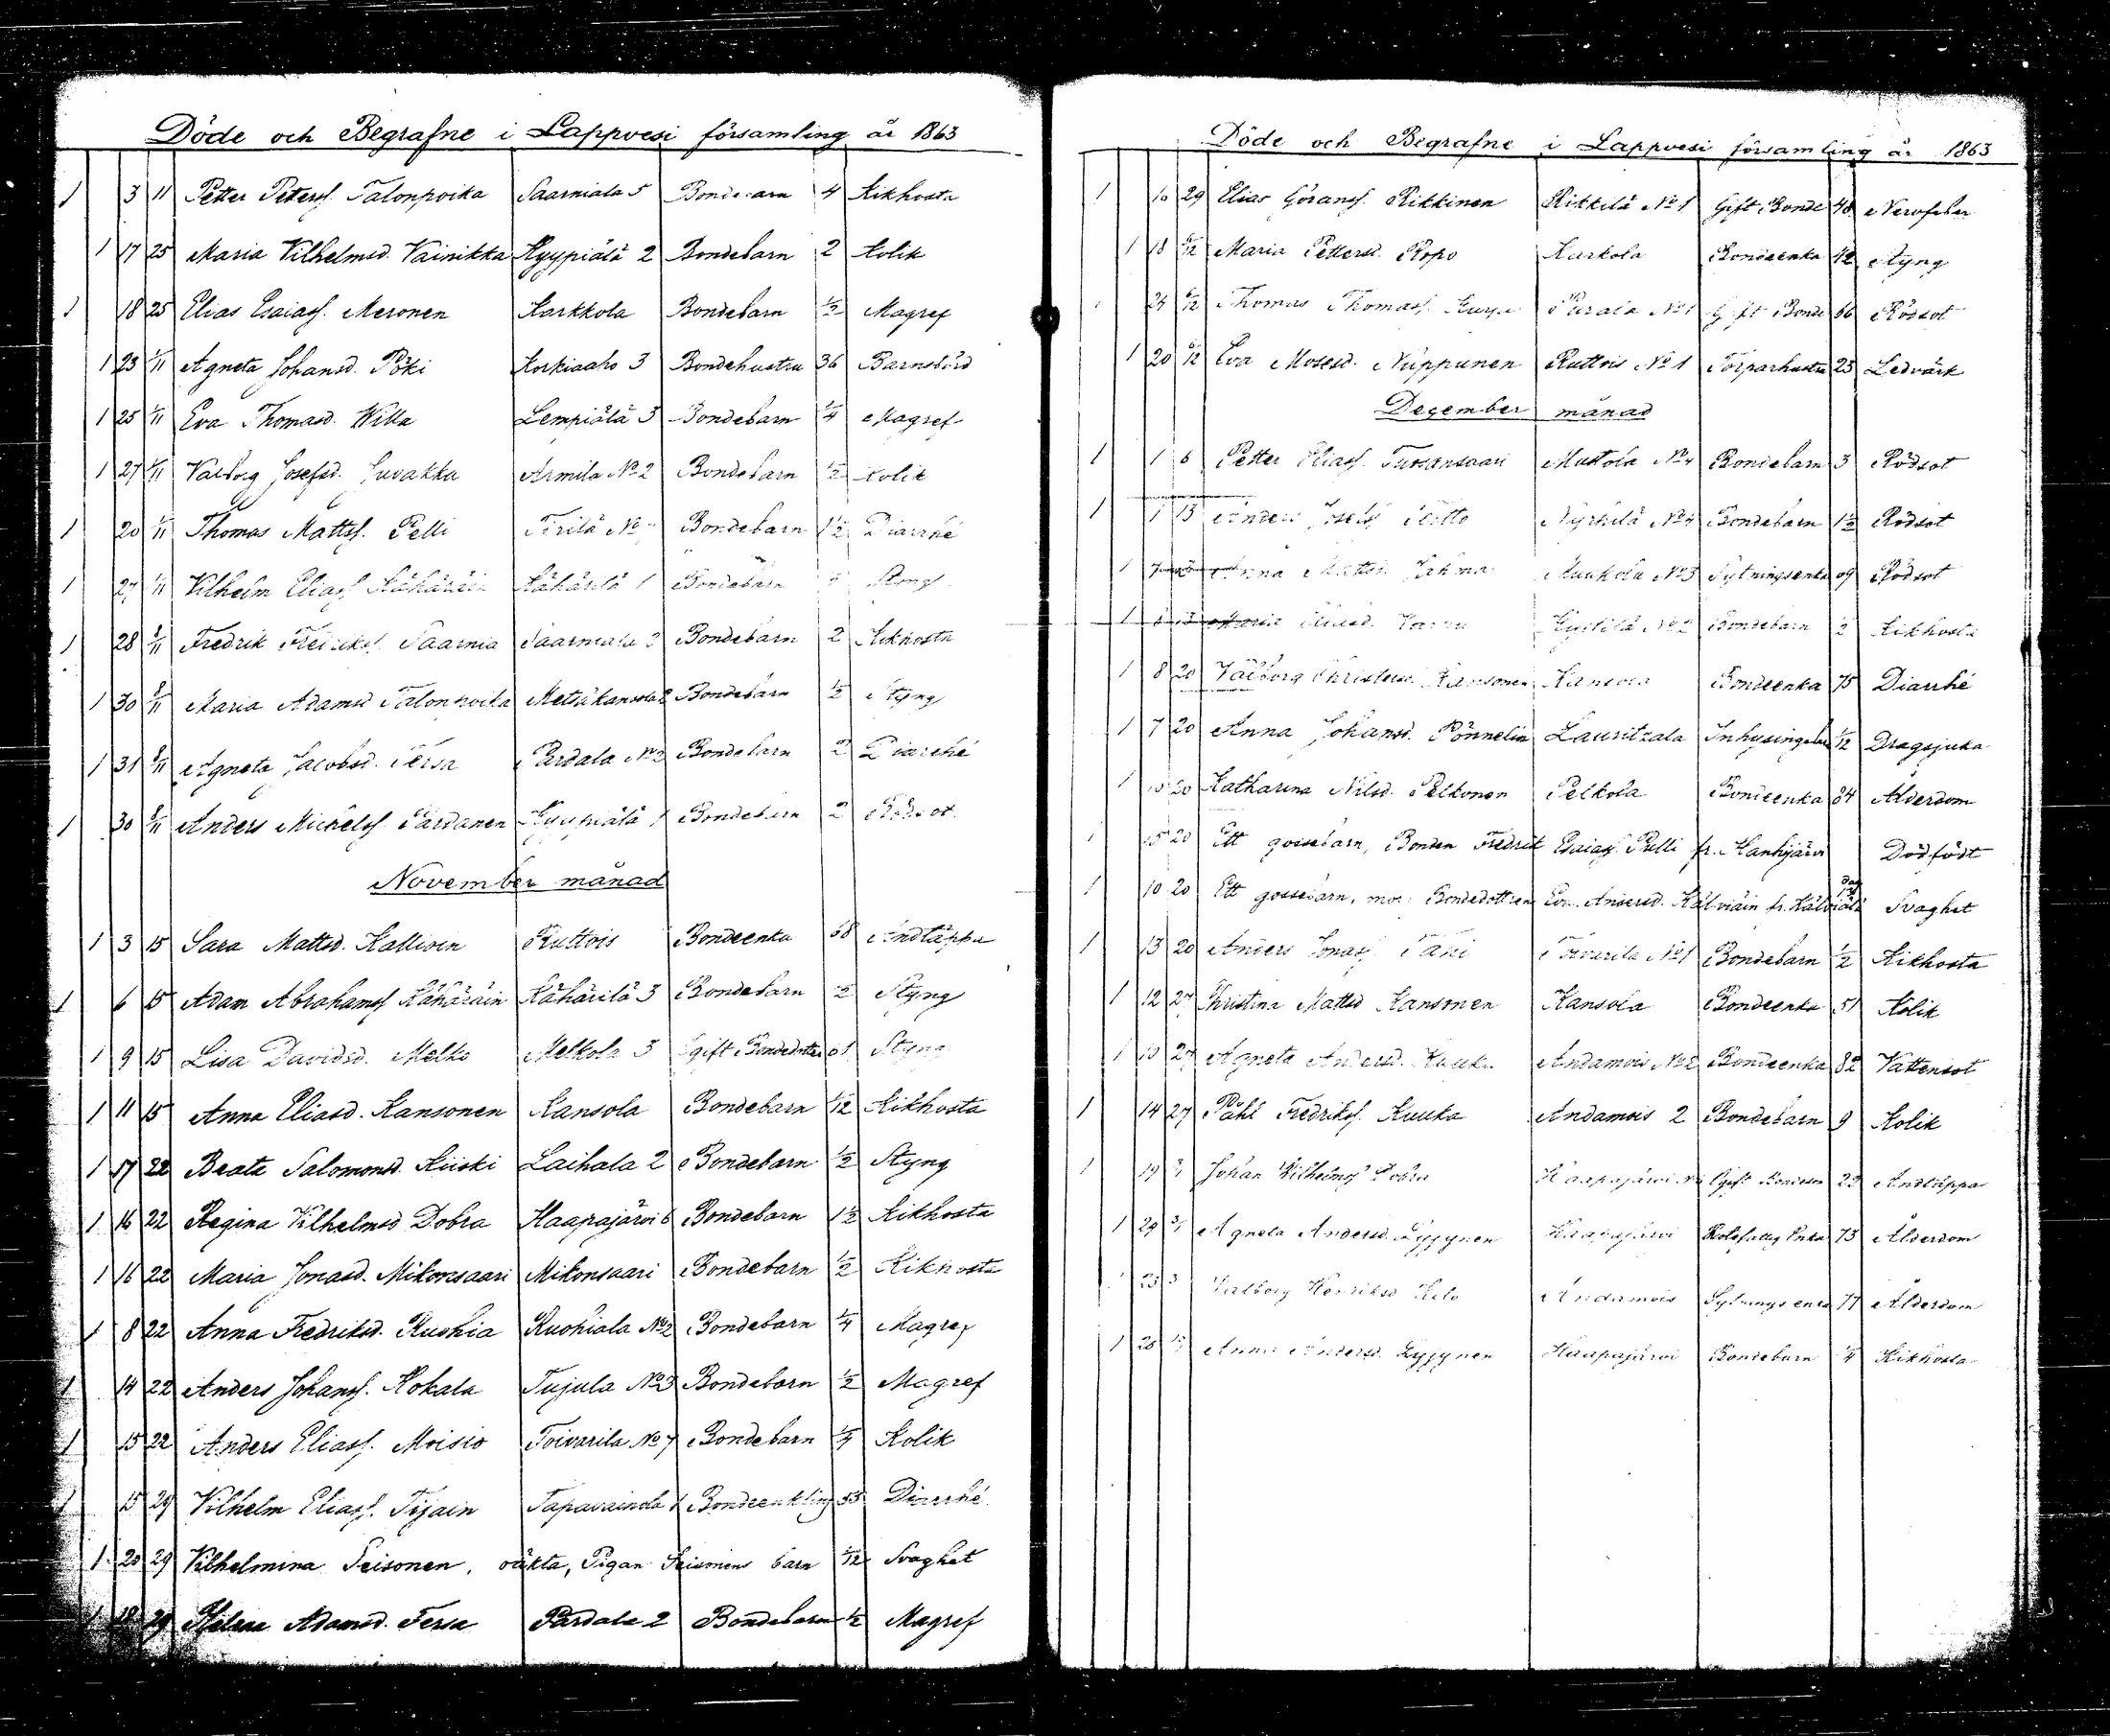 Döde och Begrafne i Lappvesi församling år 1863
1 3 11 Petter Petersf. Talonpoika Saarniala 5 Bondebarn 4 Kikhosta
1 17 25 Maria Vilhelmsd. Vainikka Kyypiälä 2 Bondebarn 2 Kolik
1 18 25 Elias Esaiasf. Meronen Karkkola Bondebarn 1/2 Magref
1 23 1/11 Agneta Johansd. Pöki Korkiaaho 3 Bondehustru 36 Barnsbörd
1 25 1/11 Eva Thomasd. Willa Lempiälä 3 Bondebarn 1/4 Magref
1 27 1/11 Valborg Josefsd. Juvakka Armila No 2 Bondebarn 1/2 Kolik
1 20 1/11 Thomas Mattsf. Pelli Tirilä No Bondebarn 1 1/2 Diarrhé
1 27 1/11 Vilhelm Eliasf. Kähäräin Kähärilä 1 Bondebarn
1 28 8/11 Fredrik Fredriksf. Saarnia Saarniala 3 Bondebarn 2 Kikhosta
1 30 8/11 Maria Adamsd Talonpoika Metsäkansola 2 Bondebarn 1/2 Styng
1 31 8/11 Agneta Jacobsd. Tersa Pardala No 2 Bondebarn 2 Diarrhé
1 30 8/11 Anders Michelsf. Pardanen Kyypiälä 1 Bondebarn 2 Rödsot
November månad
1 3 15 Sara Mattsd. Kallioin Ruttois Bondeenka 68 Andtäppa
1 6 15 Adam Abrahamsf Kähäräin Kähärilä 3 Bondebarn 1/2 Styng
1 9 15 Lisa Davidsd. Melko Melkola 3 Ogift Bondedotter 61 Styng
1 11 15 Anna Eliasd. Kansonen Kansola Bondebarn 1/12 Kikhosta
1 17 22 Beata Salomonsd. Kiiski Laihala 2 Bondebarn 1/2 Styng
1 16 22 Regina Vilhelmsd Dobra Haapajärvi 6 Bondebarn 1 1/2 Kikhosta
1 16 22 Maria Jonasd. Mikonsaari Mikonsaari Bondebarn 1/2 Kikhosta
1 8 22 Anna Fredriksd. Ruohia Ruohiala No 2 Bondebarn 1/4 Magref
1 14 22 Anders Johansf. Kokala Tujula No 3 Bondebarn 1/2 Magref
1 15 22 Anders Eliasf. Moisio Toivarila No 7 Bondebarn 1/4 Kolik
1 15 29 Vilhelm Eliasf. Tijain Tapavainola 1 Bondeenkling 55 Diarrhé
1 20 29 Vilhelmina Seisonen, oäkta, Pigan Seisonens barn 1/12 Svaghet
1 18 29 Helena Adamsd. Tersa Pardala 2 Bondebarn 1/2 Magref
Döde och Begrafne i Lappvesi församling år 1863
1 16 29 Elias Göransf. Rikkinen Rikkilä No 1 Gift Bonde 48 Nervfeber
1 18 6/12 Maria Pettersd. Ropo Karkola Bondeenka 42 Styng
24 6/12 Thomas Thomasf. Purala No 1 Gift Bonde 66 Rödsot
1 20 6/12 Eva Mosesd. Nuppunen Ruttois No 1 Torparhustru 23 Ledvärk
December månad
1 1 6 Petter Eliasf. Tuosansaari Mustola No 4 Bondebarn 3 Rödsot
1 1 13 Anders Josefsf. Bondebarn 1 1/2 Rödsot
1 7 Anna Mattsd. Muukola No 3 Sytningsenka 69 Rödsot
1 Maria Bondebarn 1/2 Kikhosta
1 8 20 Valborg Christersd. Kansonen Kansola Bondeenka 75 Diarrhé
1 7 20 Anna Johansd. Pönnelin Lauritzala Inhysingebarn 1/12 Dragsjuka
1 10 20 Katharina Nilsd. Pelkonen Pelkola Bondeenka 84 Ålderdom
1 15 20 Ett gossebarn, Bonden Fredrik Esaiasf. Pulli fr. Hanhijärvi Dödfödt
1 10 20 Ett gossebarn, mor: Bondedottren Eva Andersd. Kälviäin fr. Kälviälä dag Svaghet
1 13 20 Anders Jonasf. Toivarila No 1 Bondebarn 1/2 Kikhosta
1 12 27 Christina Mattsd Kansonen Kansola Bondeenka 51 Kolik
1 10 27 Agneta Andersd. Kuuka Andamois No 2 Bondeenka 82 Vattensot
1 14 27 Påhl Fredriksf. Kuuka Andamois 2 Bondebarn 9 Kolik
1 19 3/1 Johan Vilhelmsf Dobra Haapajärvi Ogift Bondeson 23 Andtäppa
1 29 3/1 Agneta Andersd. Lyyjynen Haapajärvi Rotefattig Enka 73 Ålderdom
1 23 3 Valborg Henriksd Kelo Andamois Sytningsenka 77 Ålderdom
1 28 Anna Andersd. Lyyjynen Haapajärvi Bondebarn 1/4 Kikhosta